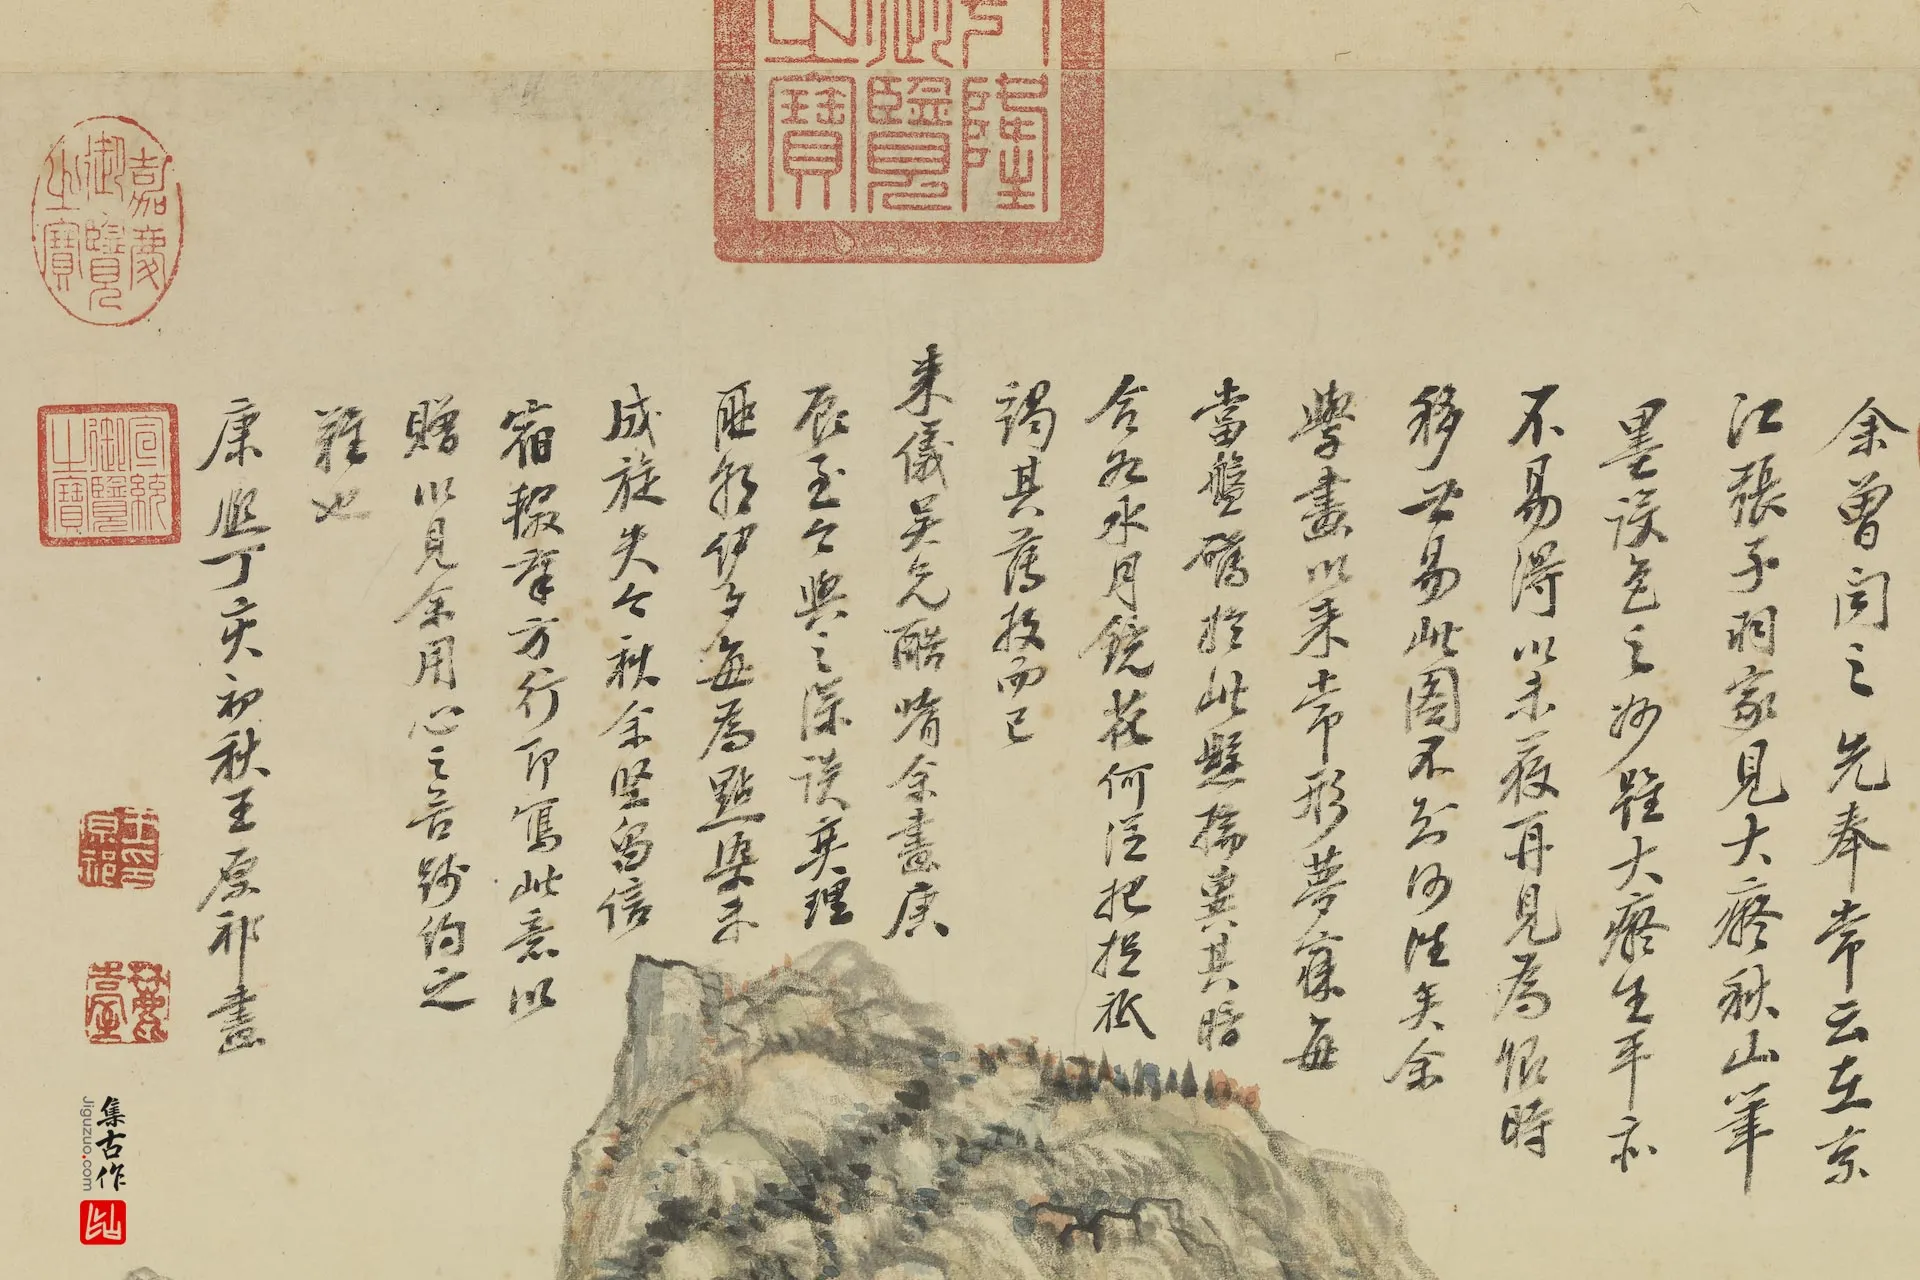 余曾聞之先奉常云在京
江張子羽家見大癡秋山筆
墨設色之妙雖大癡生平亦
不易得以未獲再見為恨時
移世易此圖不知何往矣余
學畫以來常形夢寐每
當盤礴於此懸揣冀其脗
合而水月鏡花何從把捉祇
竭其薄技而已
來儀吳先酷嗜余畫庚
辰至今與之深談奕理
每為點染未
成旋失今秋余堅留信
宿輟奕方行即寫此意以
贈以見余用心之苦踐約之
難也
康熙丁亥初秋王原祁畫
隆
御覽
之寶
嘉慶
御覽
之寶
宣統
御覽
之寶
王原祁印
麓臺
集古作
Jiguzuo.com